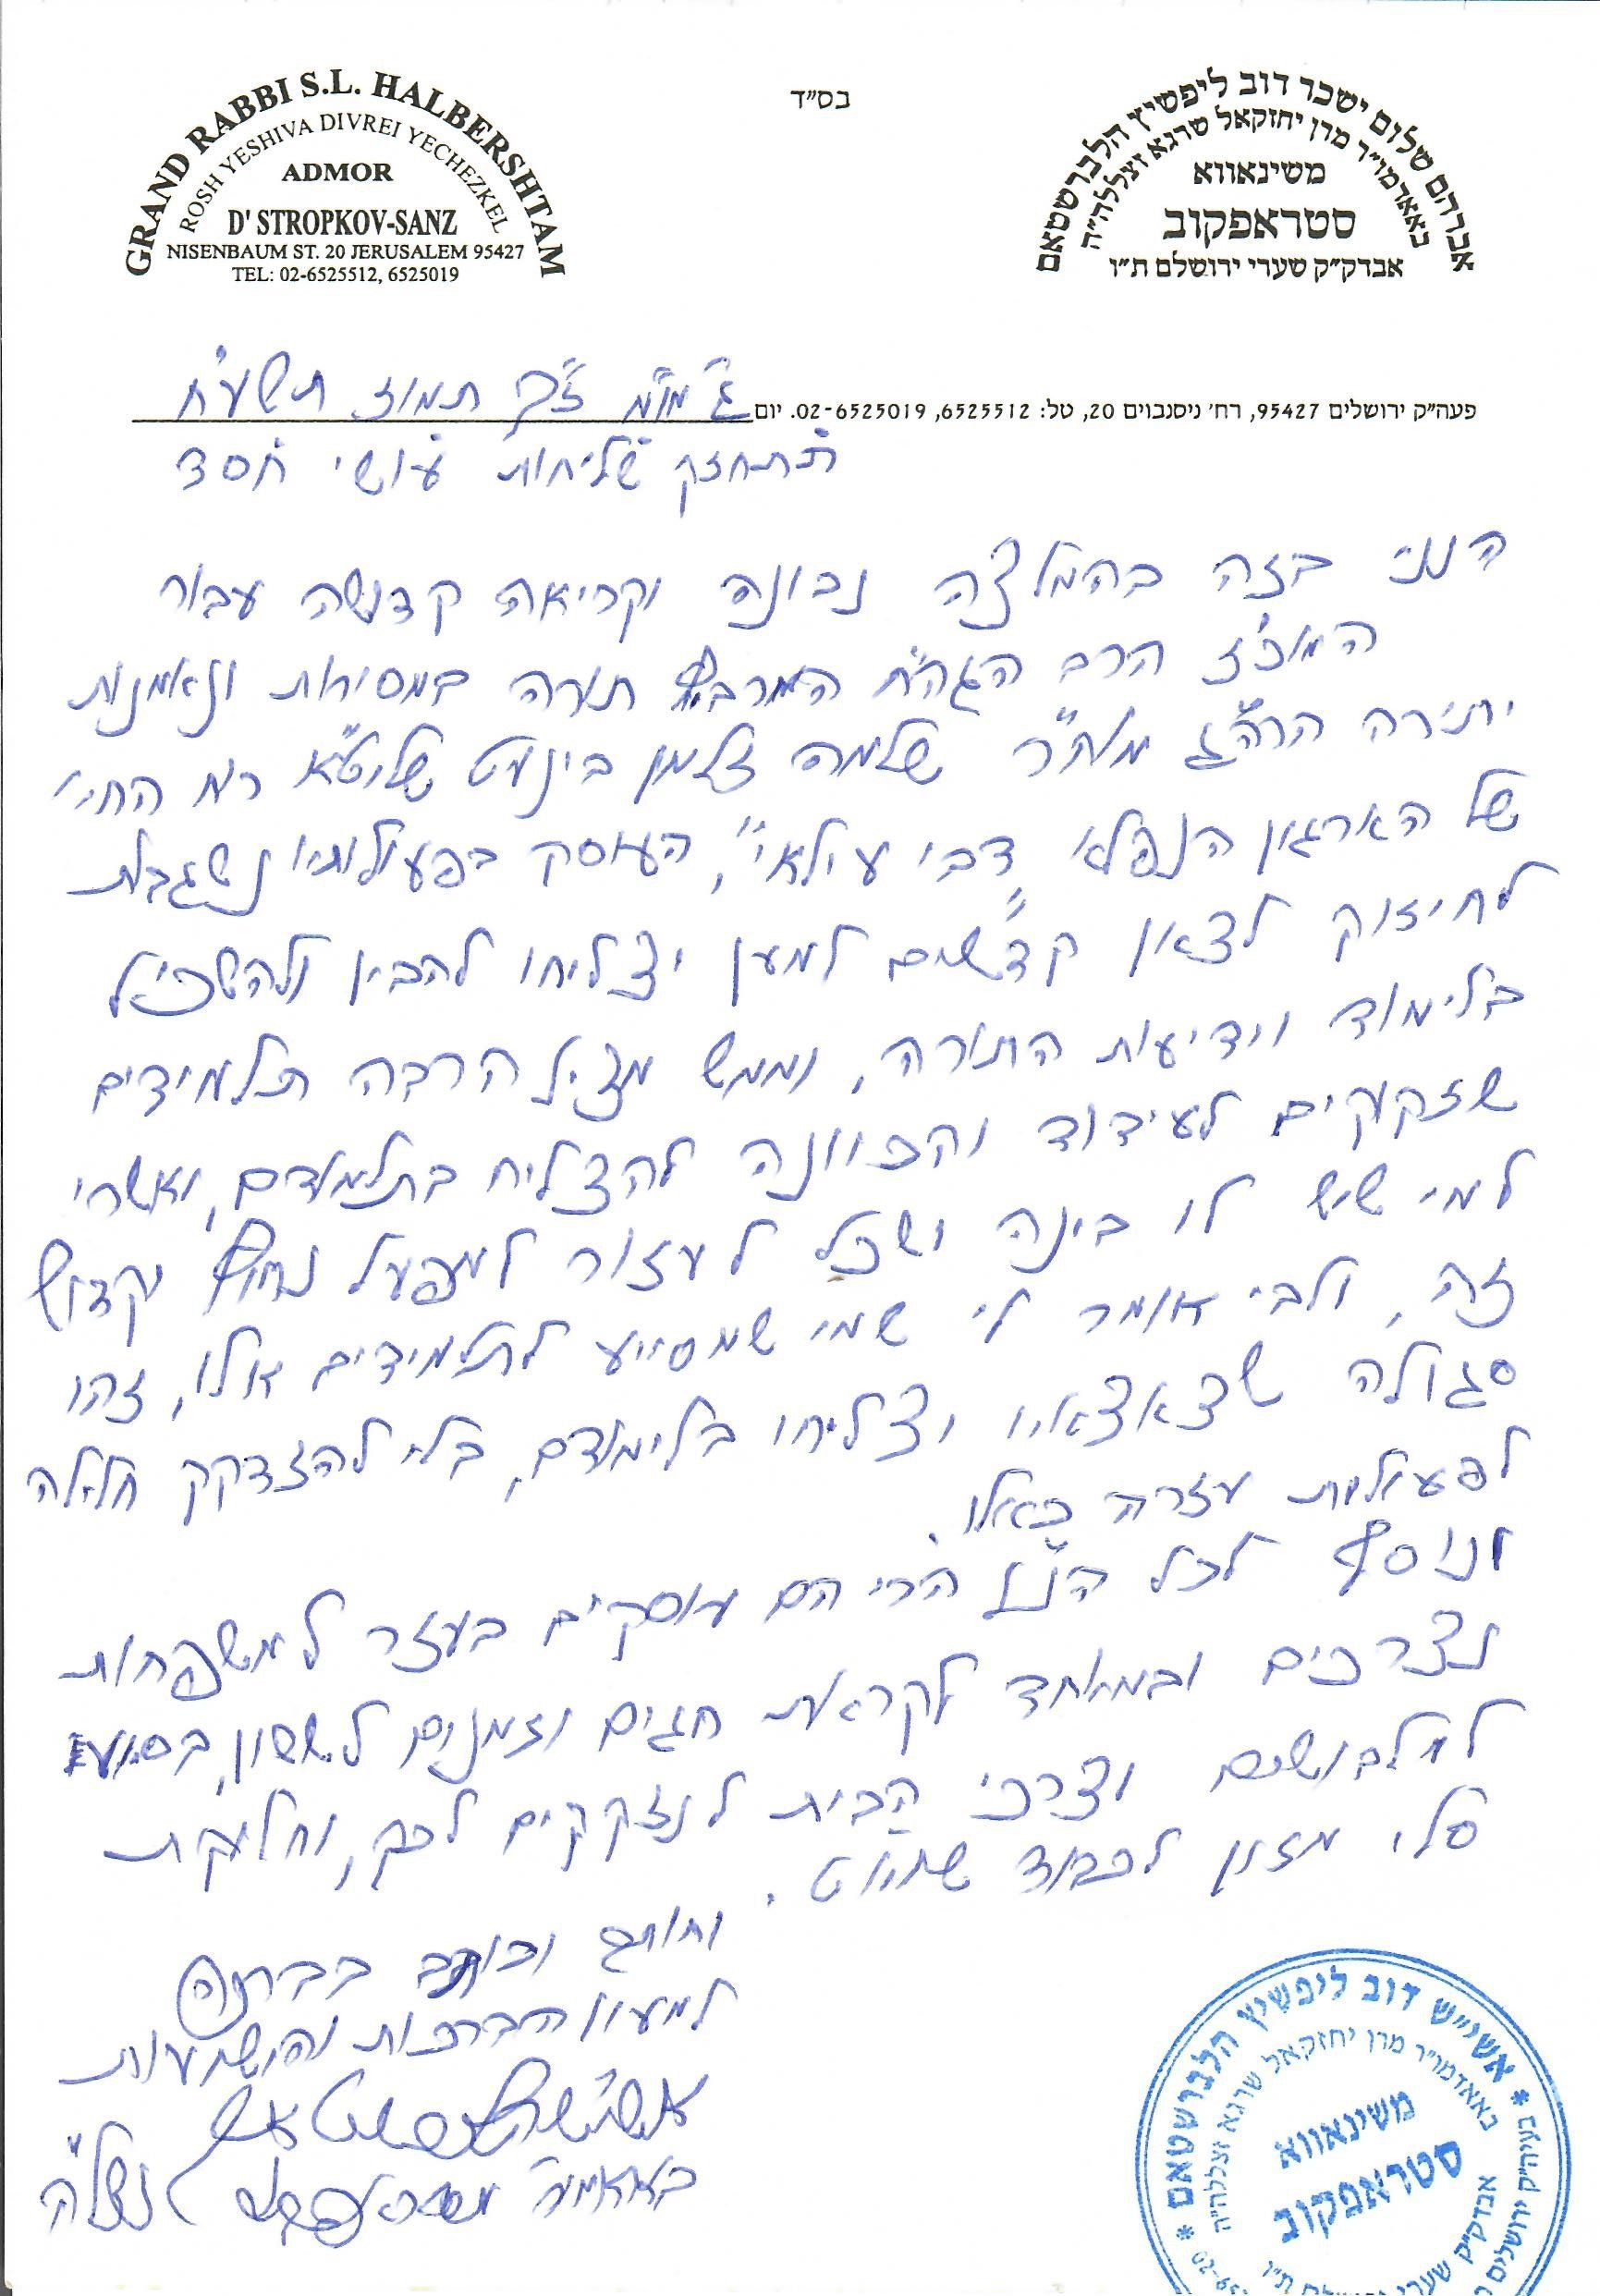 בס"ד
GRAND RABBI S.L. HALBERSHTAM
ROSH YESHIVA DIVREI YECHEZKEL
ADMOR
D' STROPKOV-SANZ
NISENBAUM ST. 20 JERUSALEM 95427
TEL: 02-6525512, 6525019
אברהם שלום ישכר דוב ליפשיץ הלברשטאם
באאדמו"ר מרן יחזקאל שרגא זצללה"ה
משינאווא
סטראפקוב
אבדק"ק שערי ירושלם ת"ו
פעה"ק ירושלים 95427, רח' ניסנבוים 20, טל: 6525512, 02-6525019. יום
תמוז תשע"ח
תתחזק שליחות עושי חסד
הנני בזה בהמלצה נכונה וקריאה קדושה עבור
המוכ"ז הרב הגה"ח המרביץ תורה במסירות ונאמנות
יתירה הרה"ג מוה"ר שלמה זלמן בינעט שליט"א
של הארגון הנפלא דבי עילאי", העוסק בפעולותיו נשגבות
לחיזוק לצאן קדשים למען יצליחו להבין ולהשכיל
בלימוד וידיעות התורה, וממש מציל הרבה תלמידים
שזקוקים לעידוד והכוונה להצליח בתלמודם, ואשרי
למי שיש לו בינה ושכל לעזור למפעל נחוץ וקדוש
זה, ולבי אומר לי שמי שמסייע לתלמידים אלו, זהו
סגולה שצאצאיו יצליחו בלימודם, בלי להזדקק חלילה
לפעולות עזרה כאלו.
ונוסף לכל הנ"ל הרי הם עוסקים בעזר למשפחות
נצרכים ובמיוחד לקראת חגים וזמנים לששון, בסיוע
למלבושים וצרכי הבית לנזקקים לכך, וחלוקת
סלי מזון לכבוד שויו"ט.
וחותם וכותב בברכה
למעון הברכות והישועות
משינאווא
סטראפקוב
אשי"ש דוב ליפשיץ הלברשטאם
באאדמו"ר מרן יחזקאל שרגא זצללה"ה